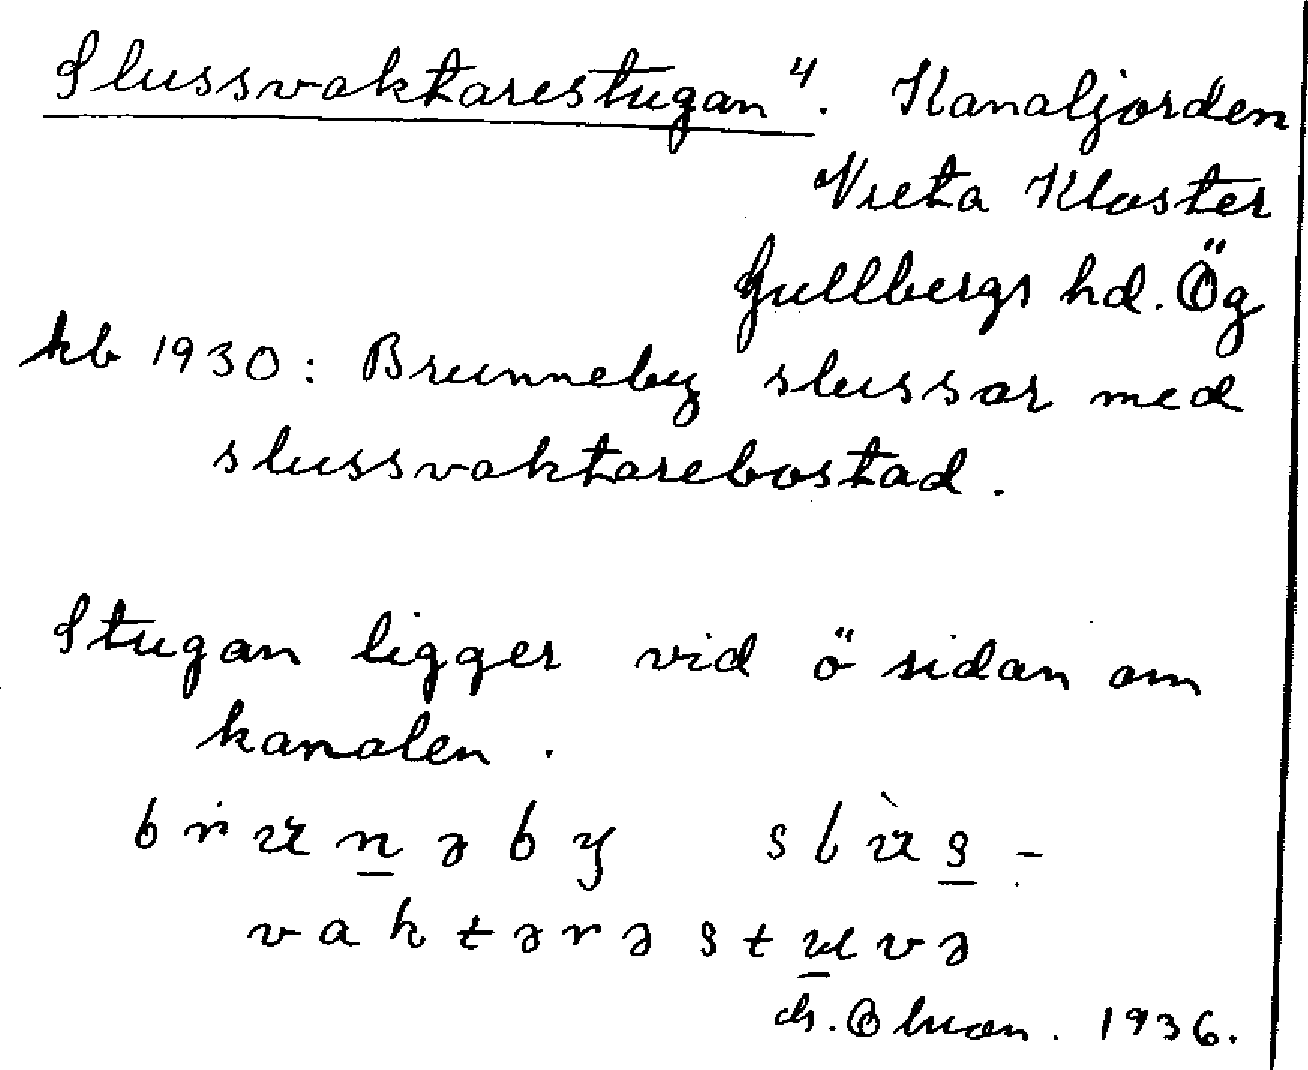 Slussvaktarestugan". Kanaljorden
Vreta Kloster
Gullbergs hd. Ög
kb 1930: Brunneby slussar med
slussvaktarebostad.
Stugan ligger vid ö sidan om
kanalen.
brunəby slùs-
vaktərəstuvə
1936.